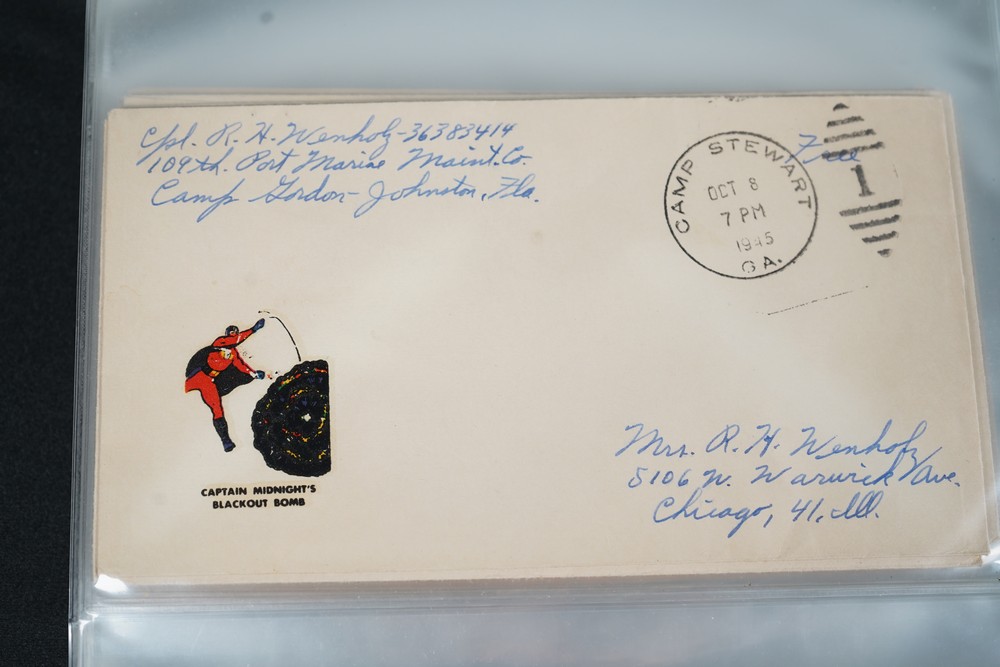 Cpl. R. H. Wenholz-36383414
109th. Port Marine Maint. Co.
Camp Gordon-Johnston, Fla.
CAMP STEWART
OCT 8
7 PM
1945
GA.
Free
1
CAPTAIN MIDNIGHT'S
BLACKOUT BOMB
Mrs. R. H. Wenholz
5106 W. Warwick Ave.
Chicago, 41, Ill.